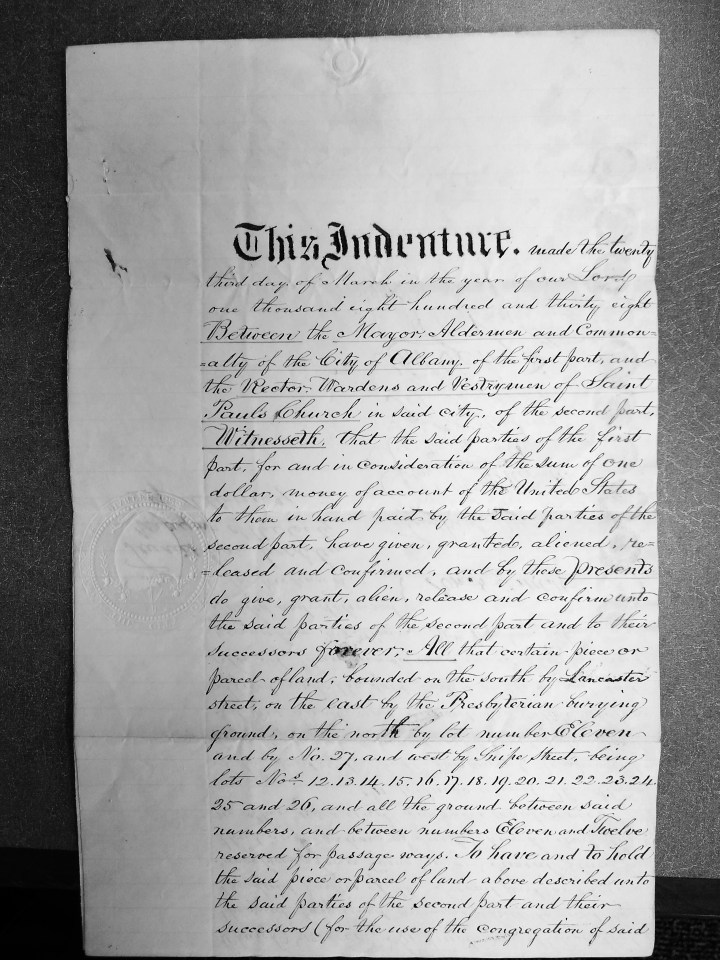 This Indenture. made the twenty
third day of March in the year of our Lord
one thousand eight hundred and thirty eight
Between the Mayor, Aldermen and Common=
=alty of the City of Albany, of the first part, and
the Rector Wardens and Vestrymen of Saint
Pauls Church in said city, of the second part,
Witnesseth, that the said parties of the first
part, for and in consideration of the sum of one
dollar, money of account of the United States
to them in hand paid by the said parties of the
second part, have given, granted, aliened, re=
=leased and confirmed, and by these presents
do give, grant, alien, release and confirm unto
the said parties of the second part and to their
successors forever; All that certain piece or
parcel of land, bounded on the south by Lancaster
street, on the east by the Presbyterian burying
ground, on the north by lot number Eleven
and by No. 27, and west by Snipe street, being
lots Nos. 12.13.14.15.16.17.18.19.20.21.22.23.24
25 and 26, and all the ground between said
numbers, and between numbers Eleven and Twelve
reserved for passage ways. To have and to hold
the said piece or parcel of land above described unto
the said parties of the second part and their
successors (for the use of the congregation of said